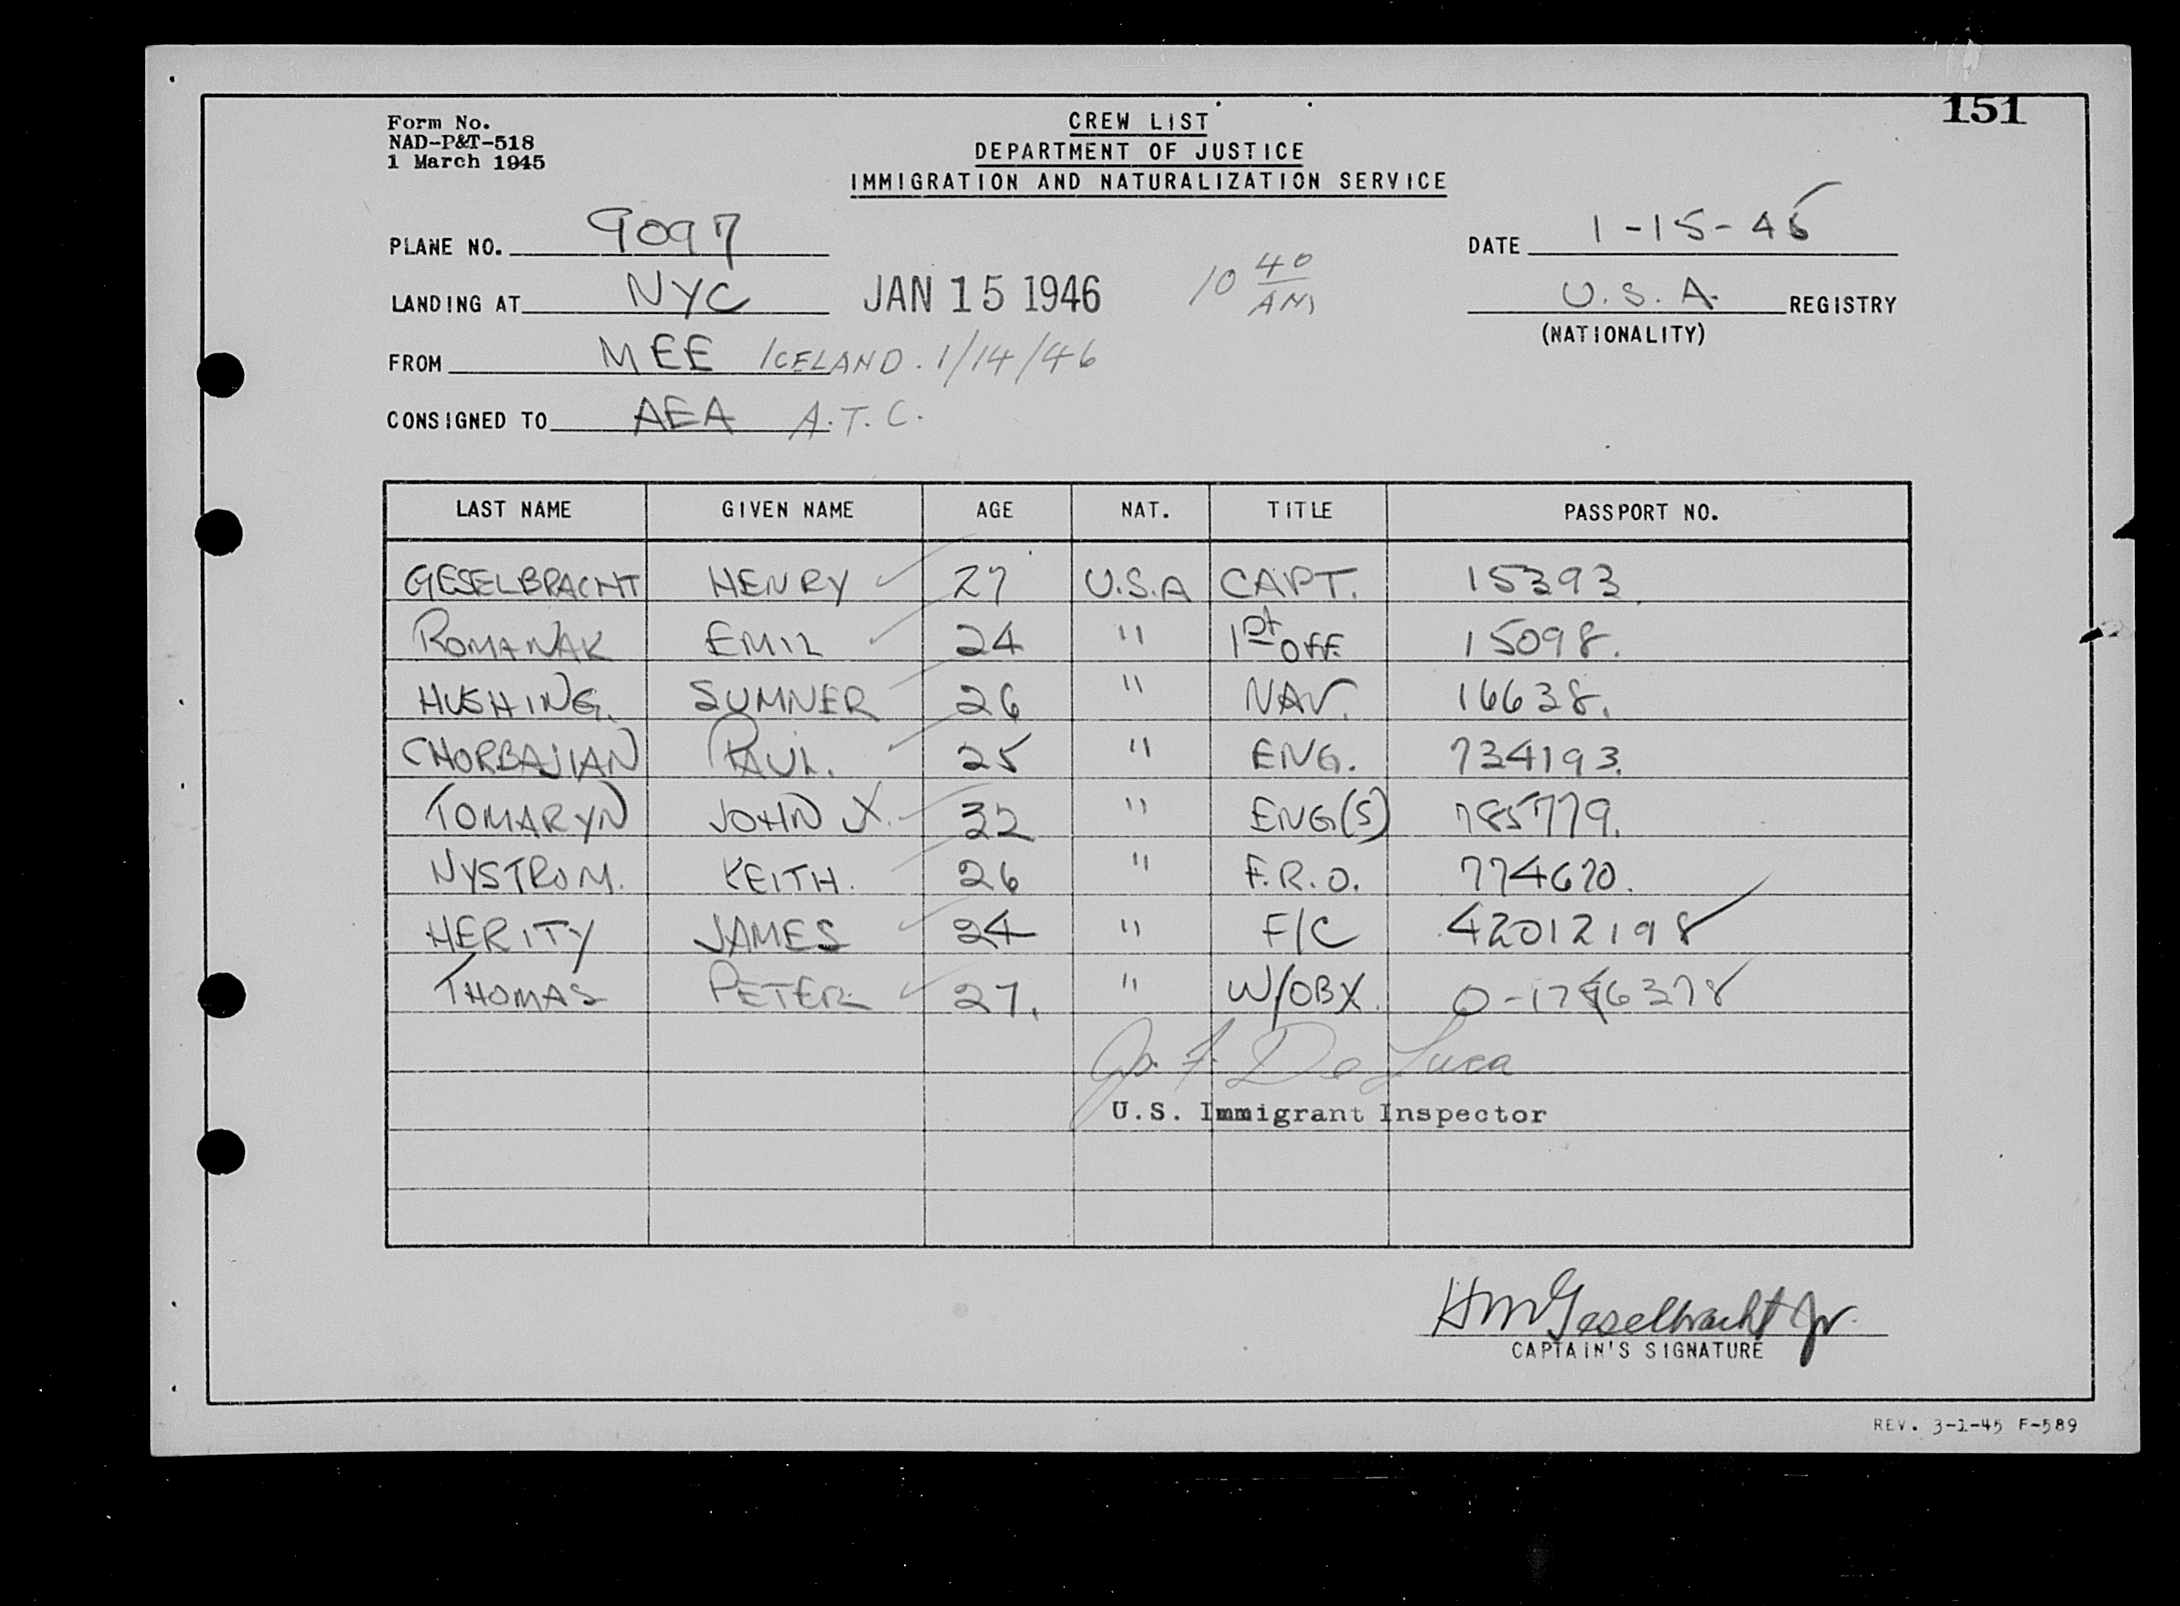 151
Form No.
NAD-P&T-518
1 March 1945
CREW LIST
DEPARTMENT OF JUSTICE
IMMIGRATION AND NATURALIZATION SERVICE
PLANE NO. 9097
DATE 1-15-46
LANDING AT NYC JAN 15 1946 10 40 AM
U.S.A. REGISTRY
(NATIONALITY)
FROM MEE ICELAND. 1/14/46
CONSIGNED TO AEA A.T.C.
LAST NAME GIVEN NAME AGE NAT. TITLE PASSPORT NO.
GESELBRACHT HENRY 27 U.S.A CAPT. 15393
ROMANAK EMIL 24 " 1st OFF. 15098.
HUSHING. SUMNER 26 " NAV. 16638.
CHORBAJIAN PAUL. 25 " ENG. 734193.
TOMARYN JOHN X. 32 " ENG(S) 785779.
NYSTROM. KEITH. 26 " F.R.O. 774670.
HERITY JAMES 24 " F/C 42012198
THOMAS PETER 27. " W/OBX. O-1746378
Jos. F. De Luca
U.S. Immigrant Inspector
HM Geselbracht Jr.
CAPTAIN'S SIGNATURE
REV. 3-1-45 F-589